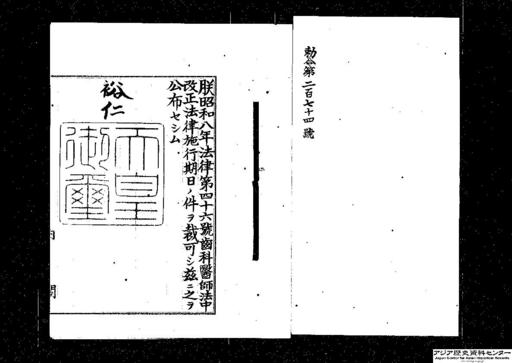 勅令第二百七十四號
朕昭和八年法律第四十六號齒科醫師法中
改正法律施行期日ノ件ヲ裁可シ茲ニ之ヲ
公布セシム
裕仁
天皇
御璽
内
閣
アジア歴史資料センター
Japan Center for Asian Historical Records